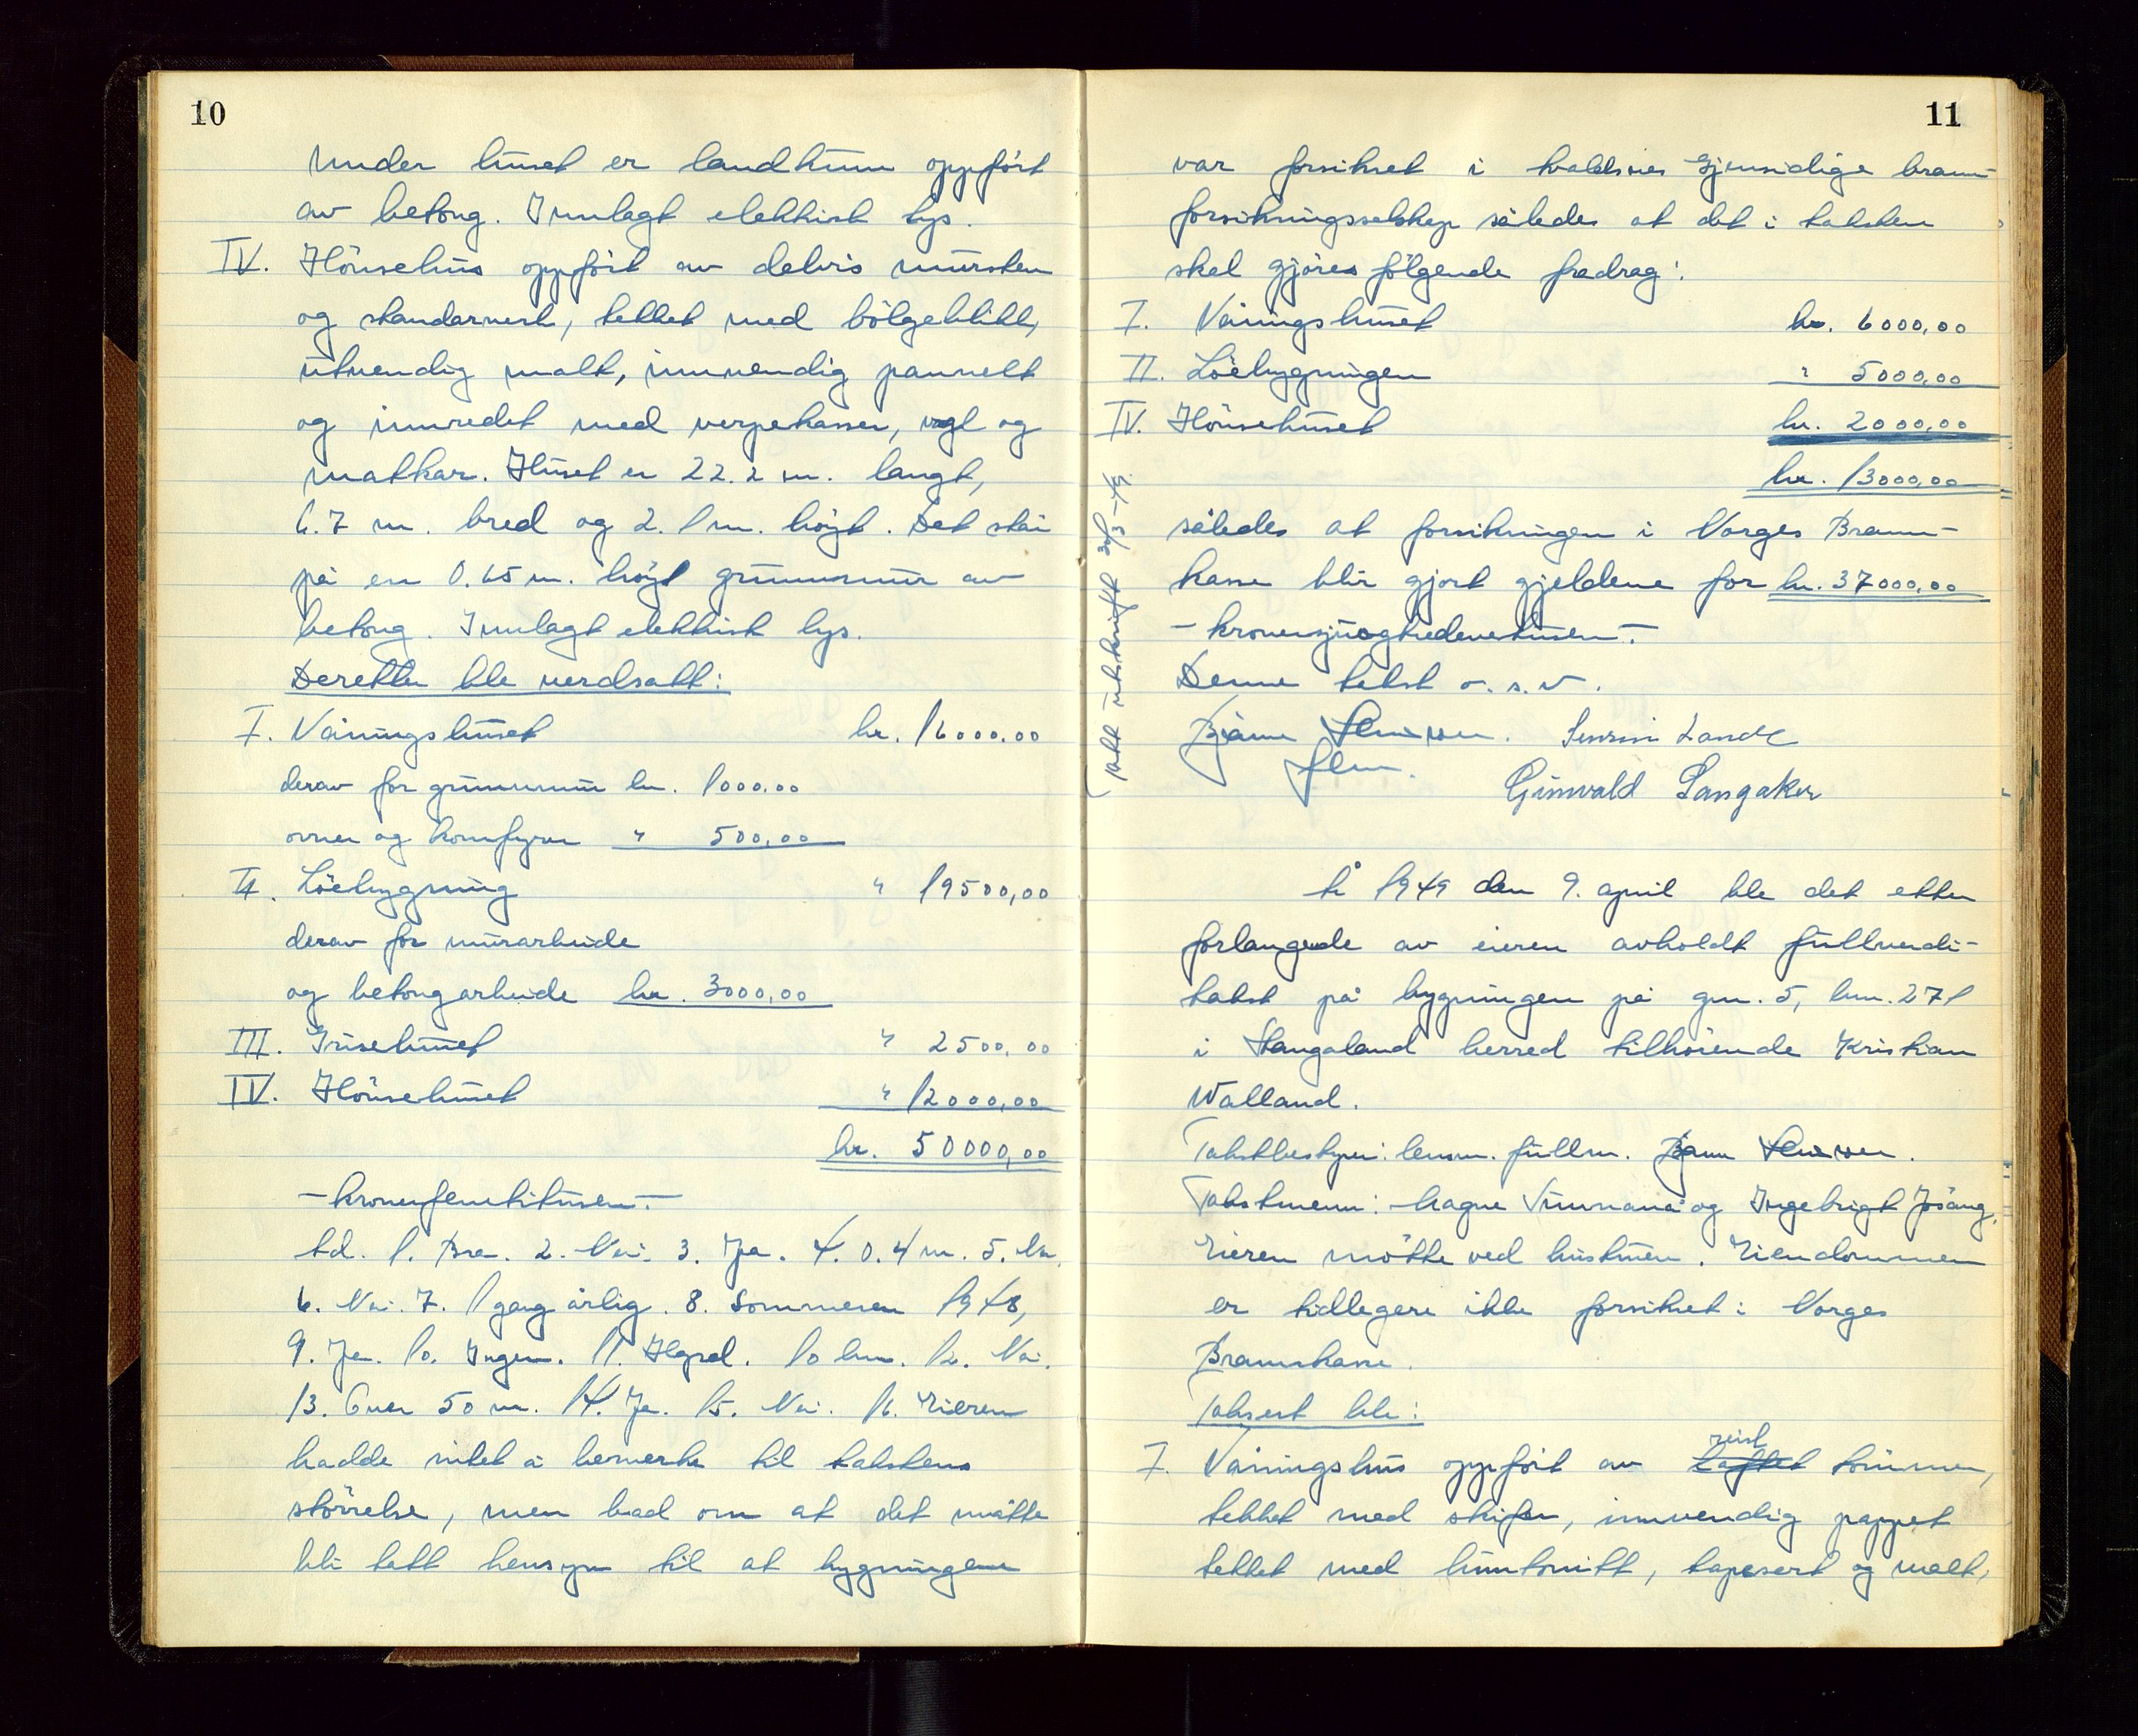 10
under huset er landkum oppført
av betong. Innlagt elektrisk lys.
IV. Hönsehus oppfört av delvis mursten
og standarverk, tekket med bölgeblikk,
utvendig malt, innvendig pannelt
og innredet med verpekasser, vagl og
matkar. Huset er 22.2 m. langt,
6.7 m. bred og 2.1 m. höyt. Det står
på en 0.65 m. höyt grunnmur av
betong. Innlagt elektrisk lys.
Deretter ble verdsatt:
I. Våningshuset kr. 16000.00
derav for grunnmur kr. 1000.00
ovner og komfyrer " 500,00
II. Löebygning " 19500,00
derav for murarbeide
og betongarbeide kr. 3000,00
III. Grisehuset " 2500.00
IV. Hönsehuset " 12000,00
kr. 50000,00
- kronerfemtitusen. -
td. 1. Bra. 2. Nei. 3. Ja. 4. 0.4 m. 5. Nei.
6. Nei. 7. 1 gang årlig. 8. Sommeren 1948,
9. Ja. 10. Ingen. 11. Hgsd. 10 km. 12. Nei.
13. Over 50 m. 14. Ja. 15. Nei. 16. Eieren
hadde intet å bemerke til takstens
störrelse, men bad om at det måtte
bli tatt hensyn til at bygningene
11
var forsikret i Avaldsnes Gjensidige brann-
forsikringsselskap således at det i taksten
skal gjöres fölgende fradrag:
I. Våningshuset kr. 6000,00
II. Löebygningen " 5000,00
IV. Hönsehuset kr. 2000,00
kr. 13000,00
således at forsikringen i Norges Brann-
kasse blir gjort gjeldene for kr. 37000,00
- kronersjuogtredevetusen. -
Denne takst o. s. v.
Bjarne . Severin Lande
flm. Gunvald Langaker
Tatt utskrift 30/3-49.
År 1949 den 9. april ble det etter
forlangede av eieren avholdt fullverdi-
takst på bygningen på gnr. 5, bnr. 271
i Stangaland herred tilhörende Kristian
Walland.
Takstbestyrer: lensm. fullm. Bjarne .
Takstmenn: Hagne og Ingebrigt Jösang.
Eieren mötte ved hustruen. Eiendommen
er tidlegere ikke forsikret i Norges
Brannkasse.
Taksert ble:
I. Våningshus oppfört av laftet reist tömmer,
tekket med skifer, innvendig pappet
tekket med huntonitt, tapesert og malt,